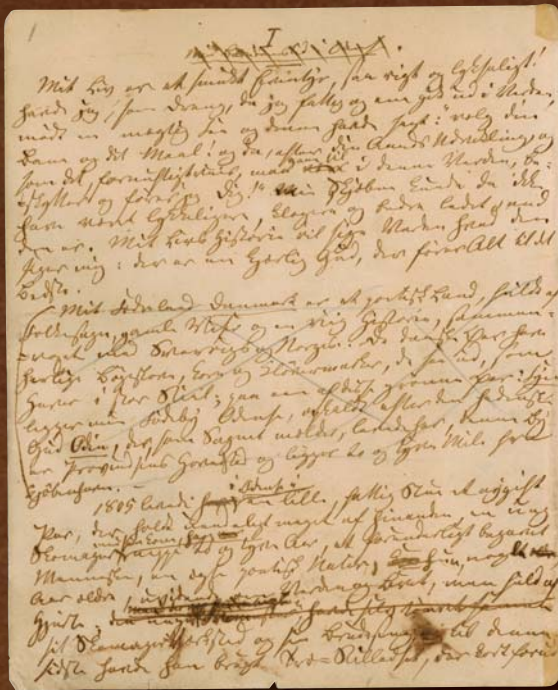 1
I
Mit Liv er et smukt Eventyr, saa rigt og lyksaligt!
havde jeg, som Dreng, da jeg fattig og ene gik ud i Verden,
mødt en mægtig Fee og denne havde sagt: "vælg din
Bane og det Maal! og da, efter din Aands Udvikling, og
som det, fornuftigviis, maa gaae til i denne Verden, be-
skytter og fører jeg Dig!" min Skjæbne kunde da ikke
have været lykkeligere, klogere og bedre ledet, end
den er. Mit Livs Historie vil sige Verden hvad den
siger mig: der er en kjærlig Gud, der fører Alt til det
Bedste.
Mit Fødeland Danmark er et poetisk Land, fuldt af
Folkesagn, gamle Viser og en riig Historie, sammen-
voxet med Sverrigs og Norges. De danske Øer have
herlige Bøgeskove, Korn og Kløvermarker, de see ud, som
Haver i stor Stiil; paa een af disse grønne Øer: Fyen
ligger min Fødeby Odense, opkaldt efter den hedenske
Gud Odin, der, som Sagnet melder, levede her, denne By
er Provindsens Hovedstad og ligger to og tyve Mile fra
Kjøbenhavn. –
i Odense i
1805 levede en lille, fattig Stue et nygift
Par, der holdt uendeligt meget af hinanden, en ung
Skomager, han var knap to og tyve Aar, et forunderligt begavet
Menneske, en ægte poetisk Natur, hun, nogle
Aar ældre, uvidende om Verden og Livet, men fuld af
Hjerte.
sit Skomagerværksted og sin Brudeseng til denne
sidste havde han brugt Træ-Stilladset, der kort forud